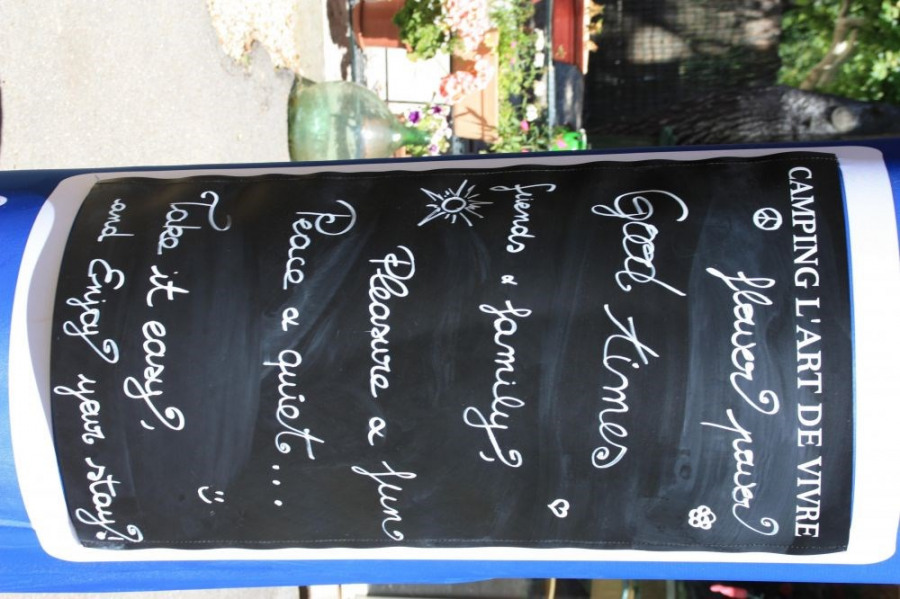 CAMPING L'ART DE VIVRE
flower power
Good times
friends & family,
Pleasure & fun
Peace & quiet...
Take it easy,
and Enjoy your stay!